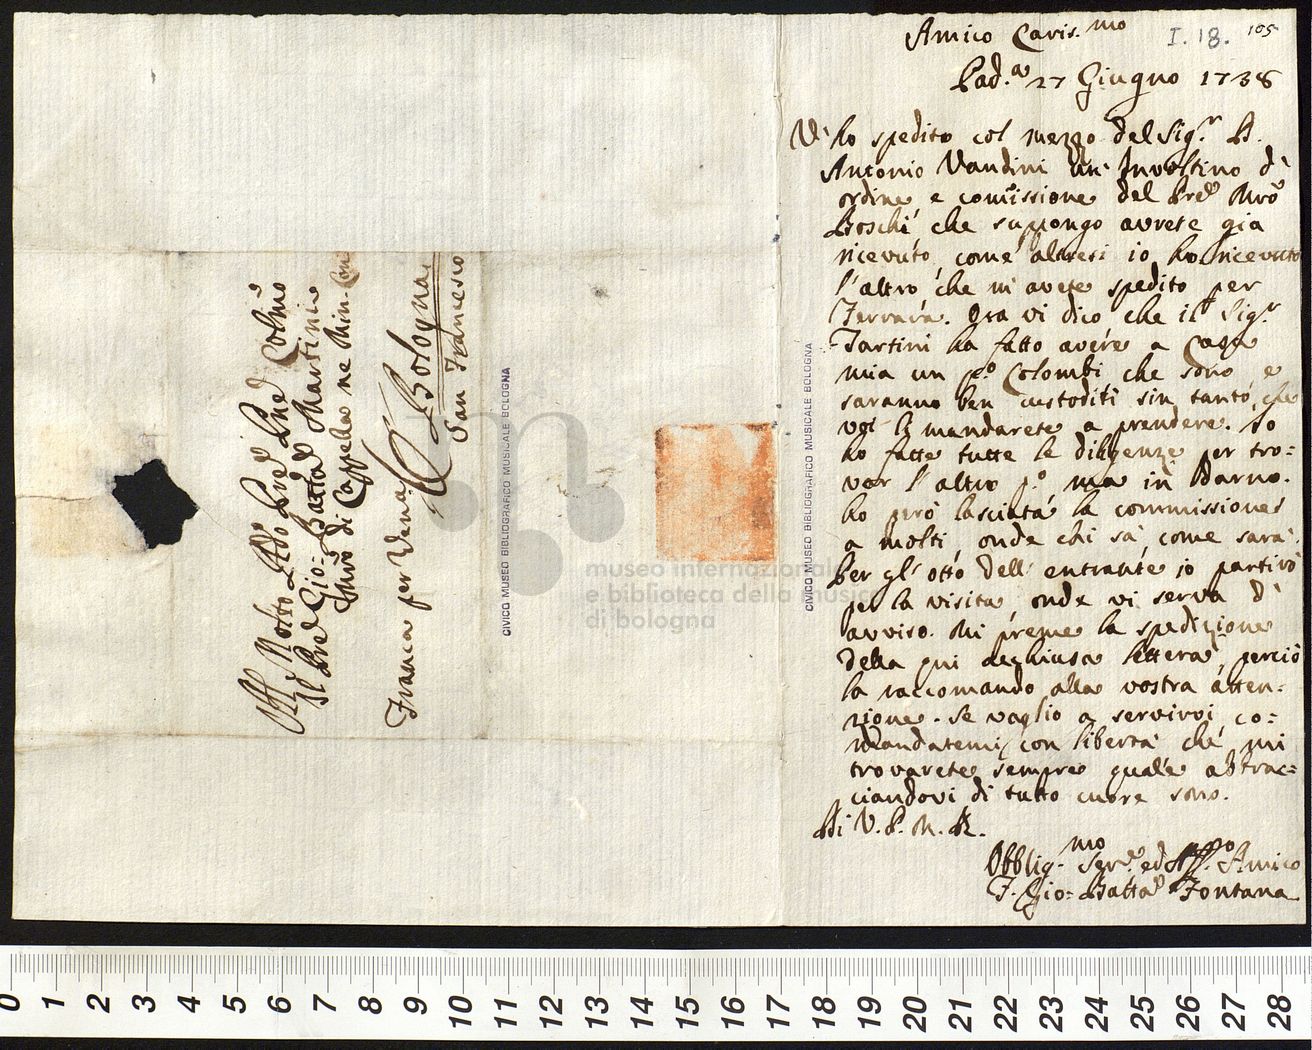 I.18. 105
Amico Caris.mo
Pad.a 27 Giugno 1738
V'ho spedito col mezzo del Sig.r D.
Antonio Vandini un' Involtino d'
ordine e comissione del Pre Mro
Boschi che suppongo avrete gia
ricevuto, come altresi io ho ricevuto
l'altro che m'avete spedito per
Ferrara. Ora vi dico che il Sig.r
Tartini ha fatto avere a Casa
mia un p.o Colombi che sono e
saranno ben custoditi sin tanto, che
voi li mandarete a prendere. Io
ho fatte tutte le diligenze per tro=
var l'altro p.o ma in darno.
ho però lasciata la commissione
a molti, onde chi sà come sarà.
Per gl'otto dell' entrante io partirò
per la visita, onde vi serva d'
avviso. Mi preme la spedizione
della qui acchiusa lettera, perciò
la raccomando alla vostra atten=
zione. Se vaglio a servirvi co=
mandatemi con libertà che mi
trovarete sempre quale abbrac=
ciandovi di tutto cuore sono.
Di V. P. M. R.
Obblig.mo Ser.e ed Aff.mo Amico
F. Gio: Batta Fontana
All Molto Rdo Pre Pne Colmo
Il Pre Gio: Batta Martini
Mro di Cappella ne Min. Con
Bologna
San Francesco
Franca per Vena
CIVICO MUSEO BIBLIOGRAFICO MUSICALE BOLOGNA
CIVICO MUSEO BIBLIOGRAFICO MUSICALE BOLOGNA
museo internazionale
e biblioteca della musica
di bologna
0 1 2 3 4 5 6 7 8 9 10 11 12 13 14 15 16 17 18 19 20 21 22 23 24 25 26 27 28